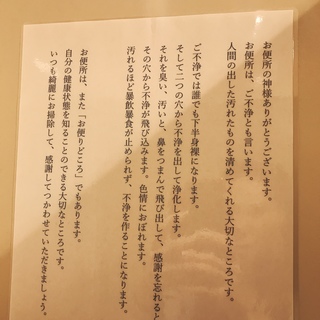 お便所の神様ありがとうございます。
お便所は、ご不浄とも言います。
人間の出した汚れたものを清めてくれる大切なところです。
ご不浄では誰でも下半身裸になります。
そして二つの穴から不浄を出して浄化します。
それを臭い、汚いと、鼻をつまんで飛び出して、感謝を忘れると
その穴から不浄が飛び込みます。色情におぼれます。
汚れるほど暴飲暴食が止められず、不浄を作ることになります。
お便所は、また「お便りどころ」でもあります。
自分の健康状態を知ることのできる大切なところです。
いつも綺麗にお掃除して、感謝してつかわせていただきましょう。